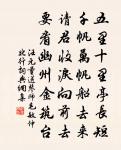 五里十里亭長短
千帆萬帆船去來
請君收淚向前去
要看幽州金築台
汪元量送琴師毛敏仲
北行詞典網集